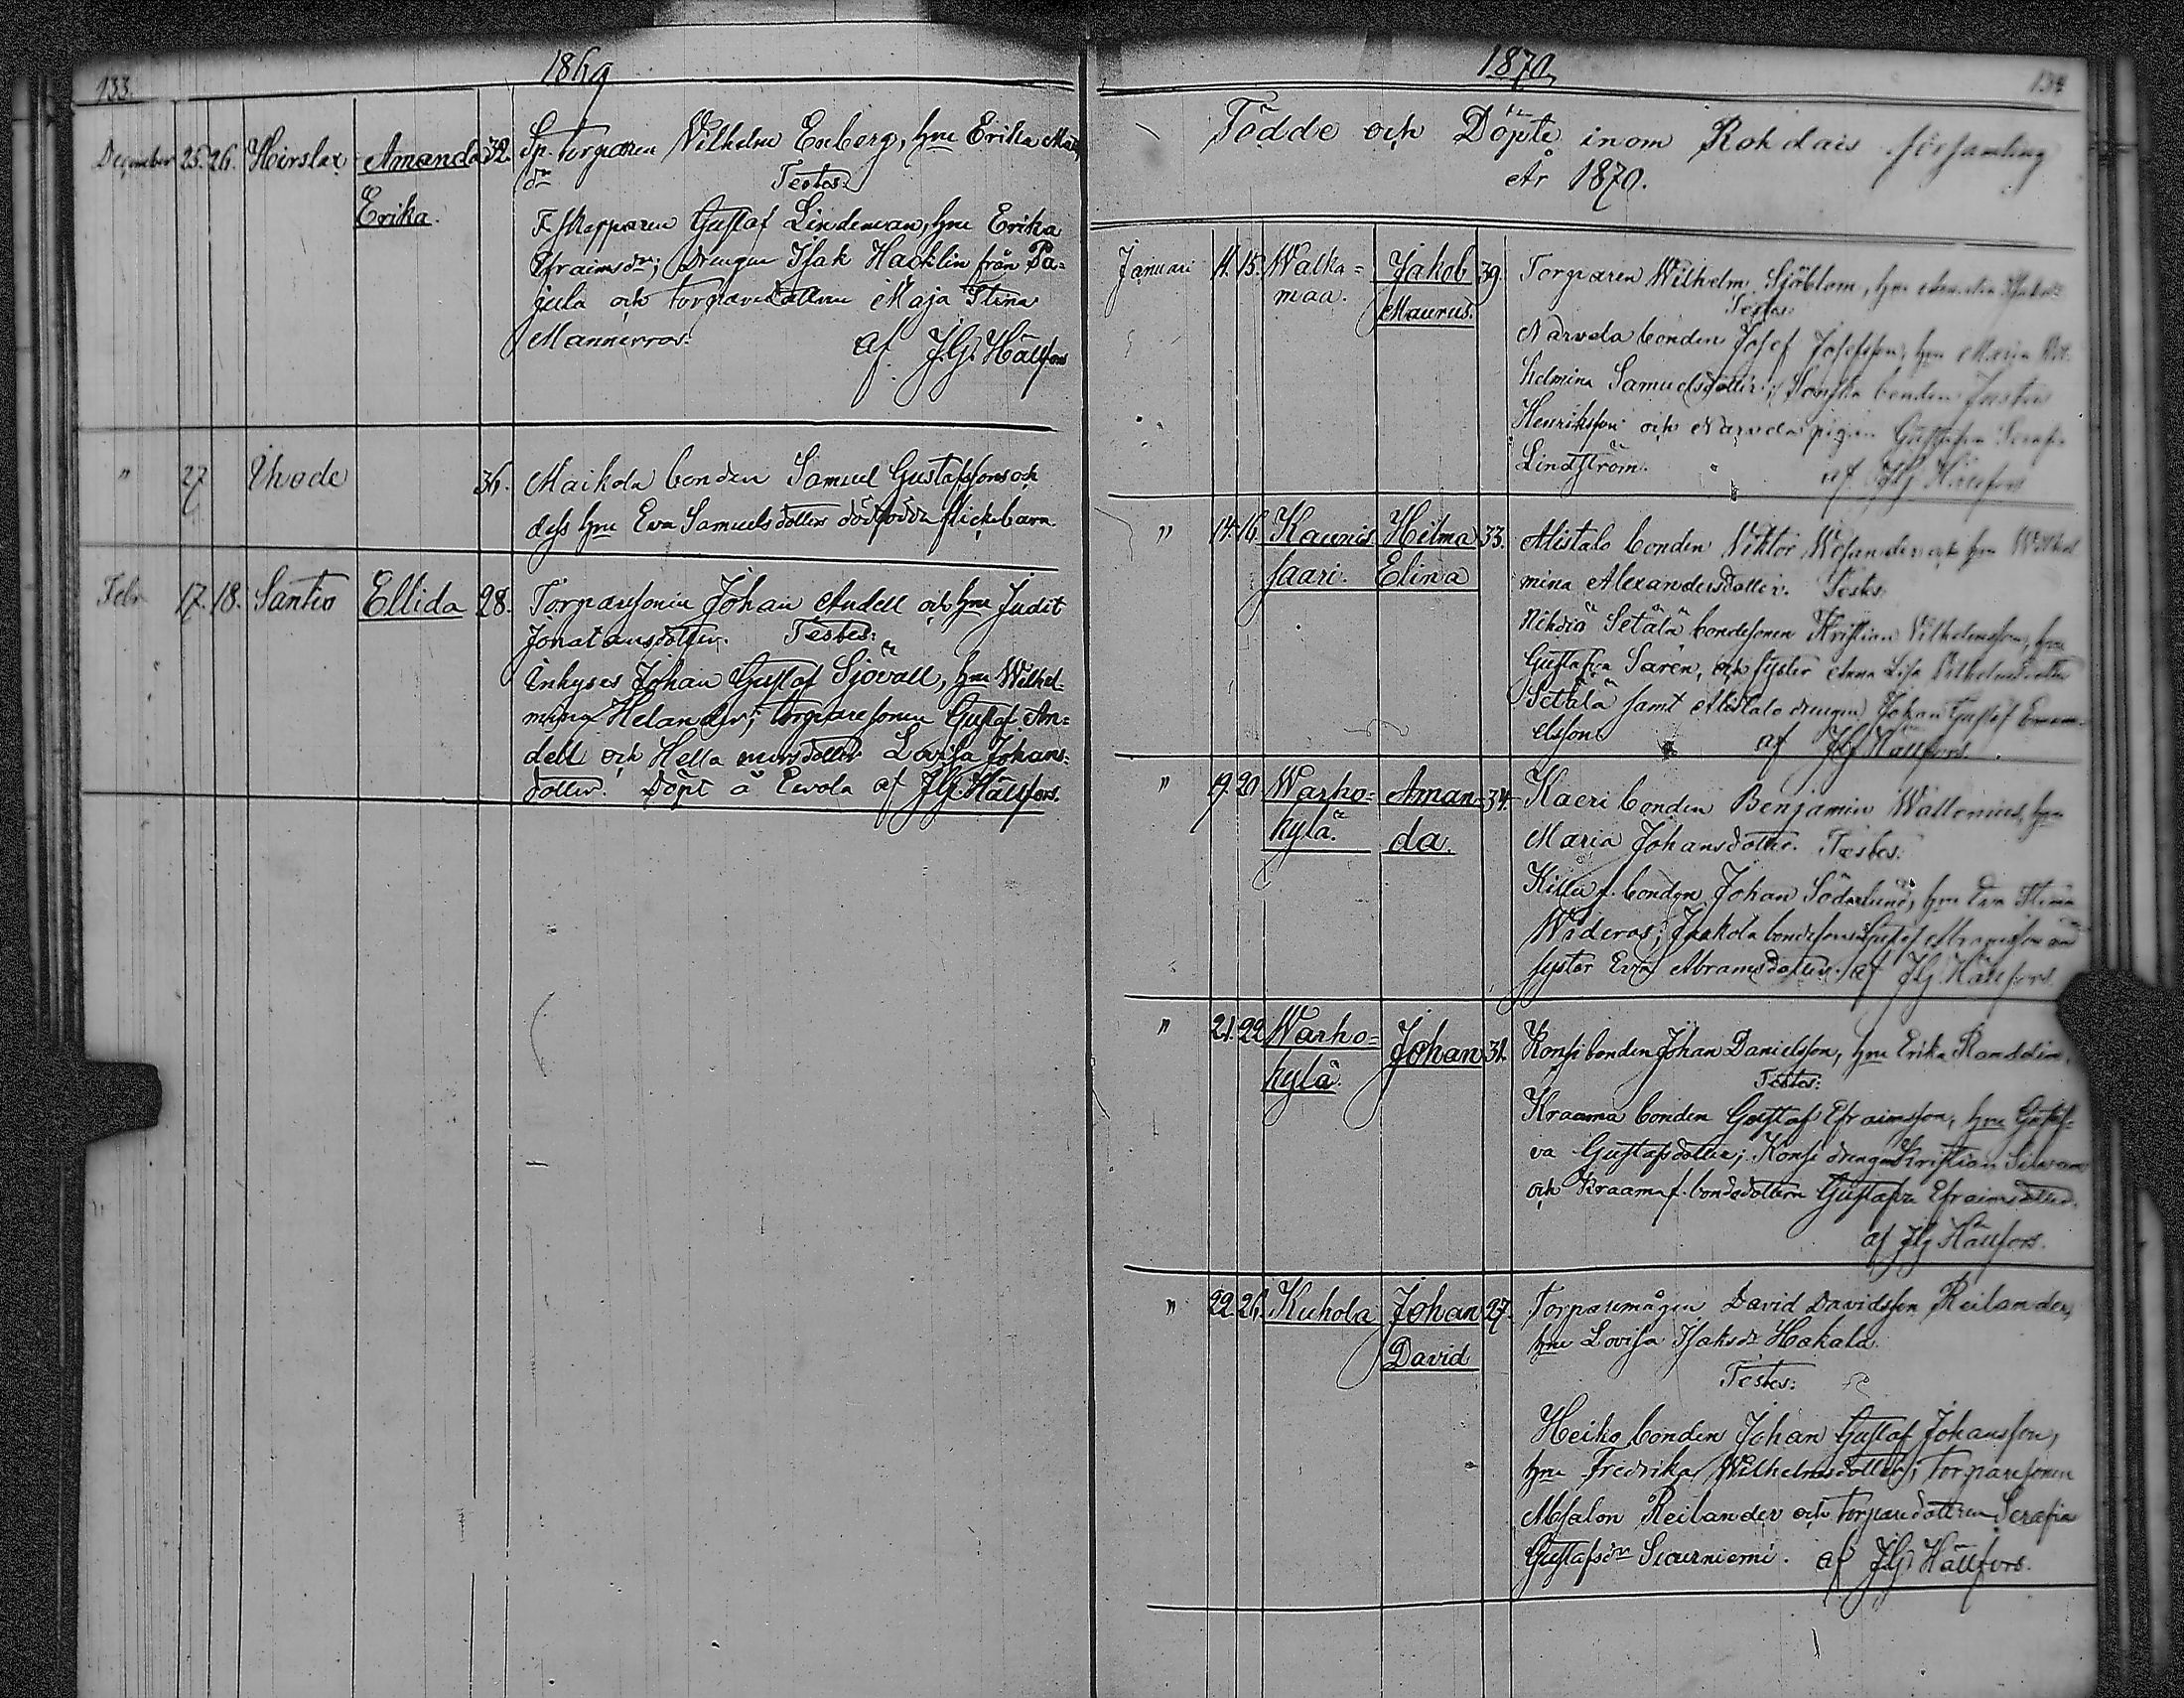 133. 1869
December 25. 26. Hirslax Amanda 32. Sp. torparen Vilhelm Enberg, hm Erika Mats
Erika. dr Testes:
F. skepparen Gustaf Lindeman, hm Erika
Efraimsdr; Drengen Isak Hacklin från Pa=
jula och torparedottren Maja Stina
Mannerros. af J.G. Hällfors
" 27 Ihode 36. Maikola bonden Samuel Gustafssons och
dess hm Eva Samuelsdotters dödfödda flickebarn
Febr 17. 18. Santio Ellida 28. Torparesonen Johan Andell och hm Judit
Jonatansdotter. Testes:
Inhyses Johan Gustaf Sjövall, hm Wilhel=
mina Helander; torparesonen Gustaf An=
dell och Hella mursdotter Lovisa Johans=
dotter. Döpt å Ervola af JG. Hällfors.
1870. 134
Födde och Döpte inom Rohdais församling
År 1870.
Januari 11. 15. Walka= Jakob 39. Torparen Wilhelm Sjöblom, hm
maa. Maurus. Testes:
Narvela bonden Josef Josefsson, hm Maria Wil=
helmina Samuelsdotter; bonden Justus
Henriksson och Narvela pigan Gustafva Serafi
Lindström. af JG Hällfors
" 14. 16. Kaunis Hilma 33. Alistalo bonden Viktor och hm Wilhel
saari. Elina mina Alexandersdotter. Testes
Nihdiö Setälä bondesonen Kristian Vilhelmsson, hm
Gustafva Saren, och syster Anna Lisa Vilhelmsdotter
Setälä samt Alistalo drengen Johan Gustaf Eman
elsson. af JG Hällfors.
" 19. 20 Warho= Aman= 34. Kaeri bonden Benjamin Wallenius, hm
kylä. da. Maria Johansdotter. Testes:
Killa f. bonden Johan Söderlund, hm Eva Stina
Wideros; Jaakola bondesonen Gustaf Abramsson och
syster Eva Abramsdotter. af JG Hällfors
" 21. 22 Warho= Johan 31. Konsi bonden Johan Danielsson, hm Erika Randelin.
kylä. Testes:
Kraama bonden Gustaf Efraimsson, hm Gustaf=
va Gustafsdotter; Konsi drengen Kristian
och Kraama f. bondedottern Gustafva Efraimsdotter.
af JG Hällfors.
" 22. 26. Kuhola Johan 27. Torparemågen David Davidsson Reilander,
David hm Lovisa Isaksdr Hakala.
Testes:
Heiko bonden Johan Gustaf Johansson,
hm Fredrika Wilhelmsdotter; torparesonen
Absalon Reilander och torparedottren Serafia
Gustafsdr Sauniemi. af JG. Hällfors.